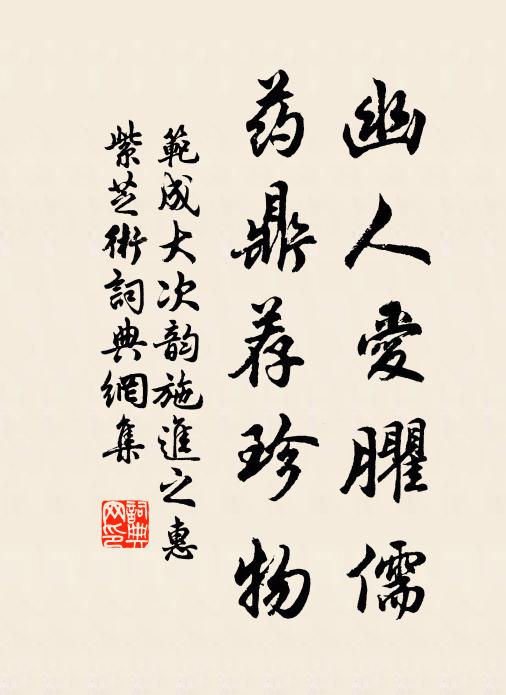 幽人愛臞儒
药鼎荐珍物
範成大次韵施進之惠
紫芝術詞典網集
詞典
网印